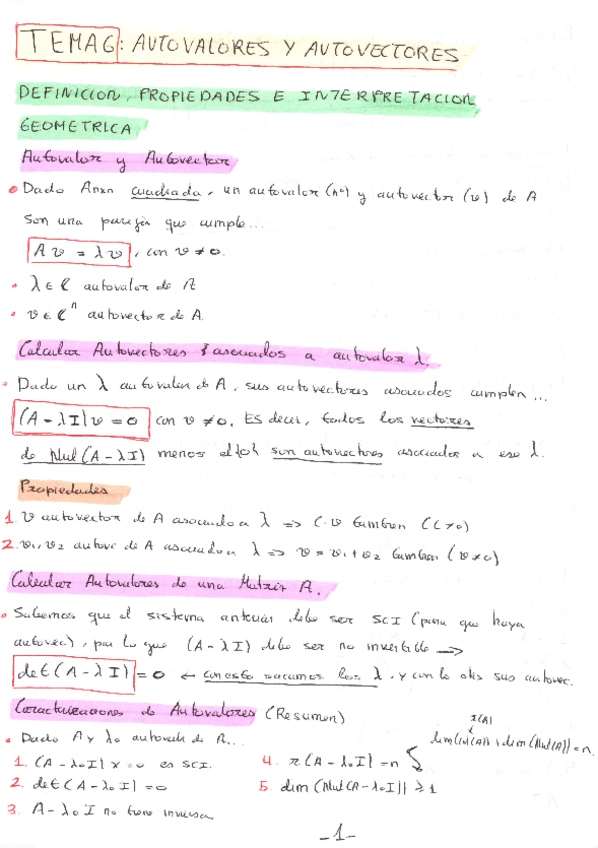 TEMA 6: AUTOVALORES Y AUTOVECTORES
DEFINICION, PROPIEDADES E INTERPRETACION
GEOMETRICA
Autovalor y Autovector
• Dado Anxn cuadrada, un autovalor (nº) y autovector (v) de A
son una pareja que cumple...
Av = λv, con v ≠ 0.
• λ ∈ ℂ autovalor de A
• v ∈ ℂⁿ autovector de A.
Calcular Autovectores asociados a autovalor λ.
• Dado un λ autovalor de A, sus autovectores asociados cumplen...
(A - λI)v = 0 con v ≠ 0. Es decir, todos los vectores
de Nul(A - λI) menos el {0} son autovectores asociados a ese λ.
Propiedades
1. v autovector de A asociado a λ => c·v tambien (c≠0)
2. v₁, v₂ autovec de A asociado a λ => v = v₁ + v₂ tambien (v≠0)
Calcular Autovalores de una Matriz A.
• Sabemos que el sistema anterior debe ser SCI (para que haya
autovec), por lo que (A - λI) debe ser no invertible →
det(A - λI) = 0 ← con esto sacamos los λ, y con lo otro sus autovec.
Caracterizaciones de Autovalores (Resumen)
r(A)
dim(Col(A)) + dim(Nul(A)) = n.
• Dado A y λ₀ autovalor de A...
1. (A - λ₀I) x = 0 es SCI.
4. r(A - λ₀I) = n
2. det(A - λ₀I) = 0
5. dim(Nul(A - λ₀I)) ≥ 1
3. A - λ₀I no tiene inversa
-1-